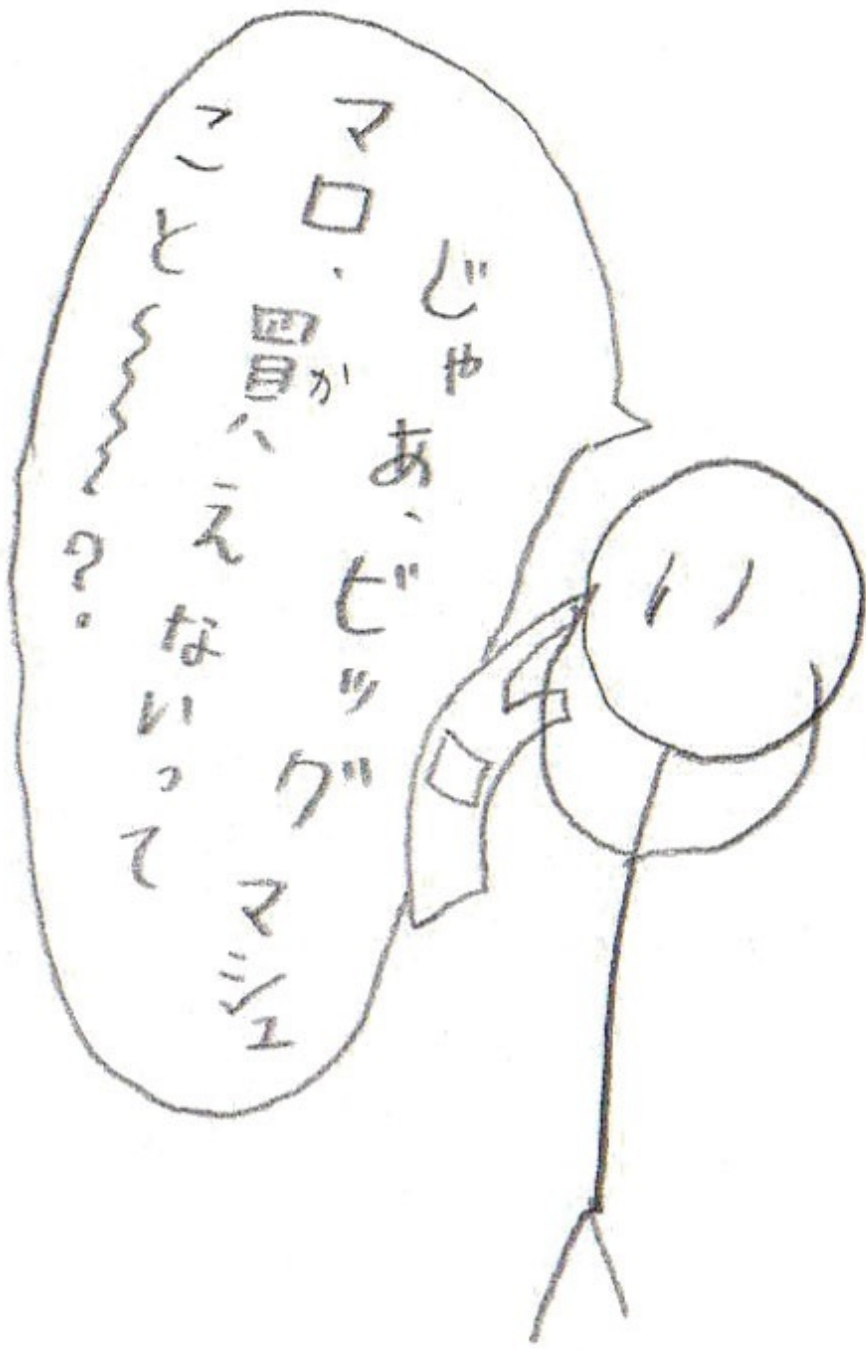 じゃあ、ビッグマシュ
マロ、買かえないって
こと〜〜〜?